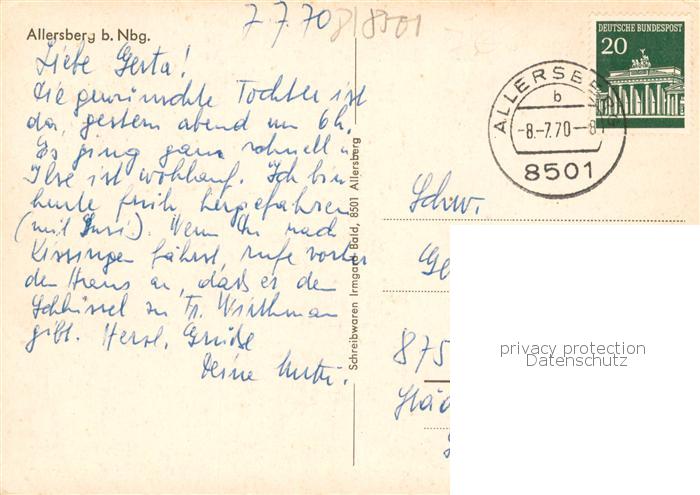 7.7.70
8/8501
Allersberg b. Nbg.
Liebe Gerta!
die gewünschte Tochter ist
da, gestern abend um 6h.
Es ging ganz schnell u.
Ilse ist wohlauf. Ich bin
heute früh hergefahren
(mit Susi). Wenn Du nach
Kissingen fährst, rufe vorher
den Hans an, dass er den
Schlüssel zu Fr. Wirthman
gibt. Herzl. Grüße
Deine Mutti.
Schreibwaren Irmgard Bald, 8501 Allersberg
DEUTSCHE BUNDESPOST
20
ALLERSBERG
b
-8.-7.70--8
8501
Schw.
Ge
875
privacy protection
Datenschutz